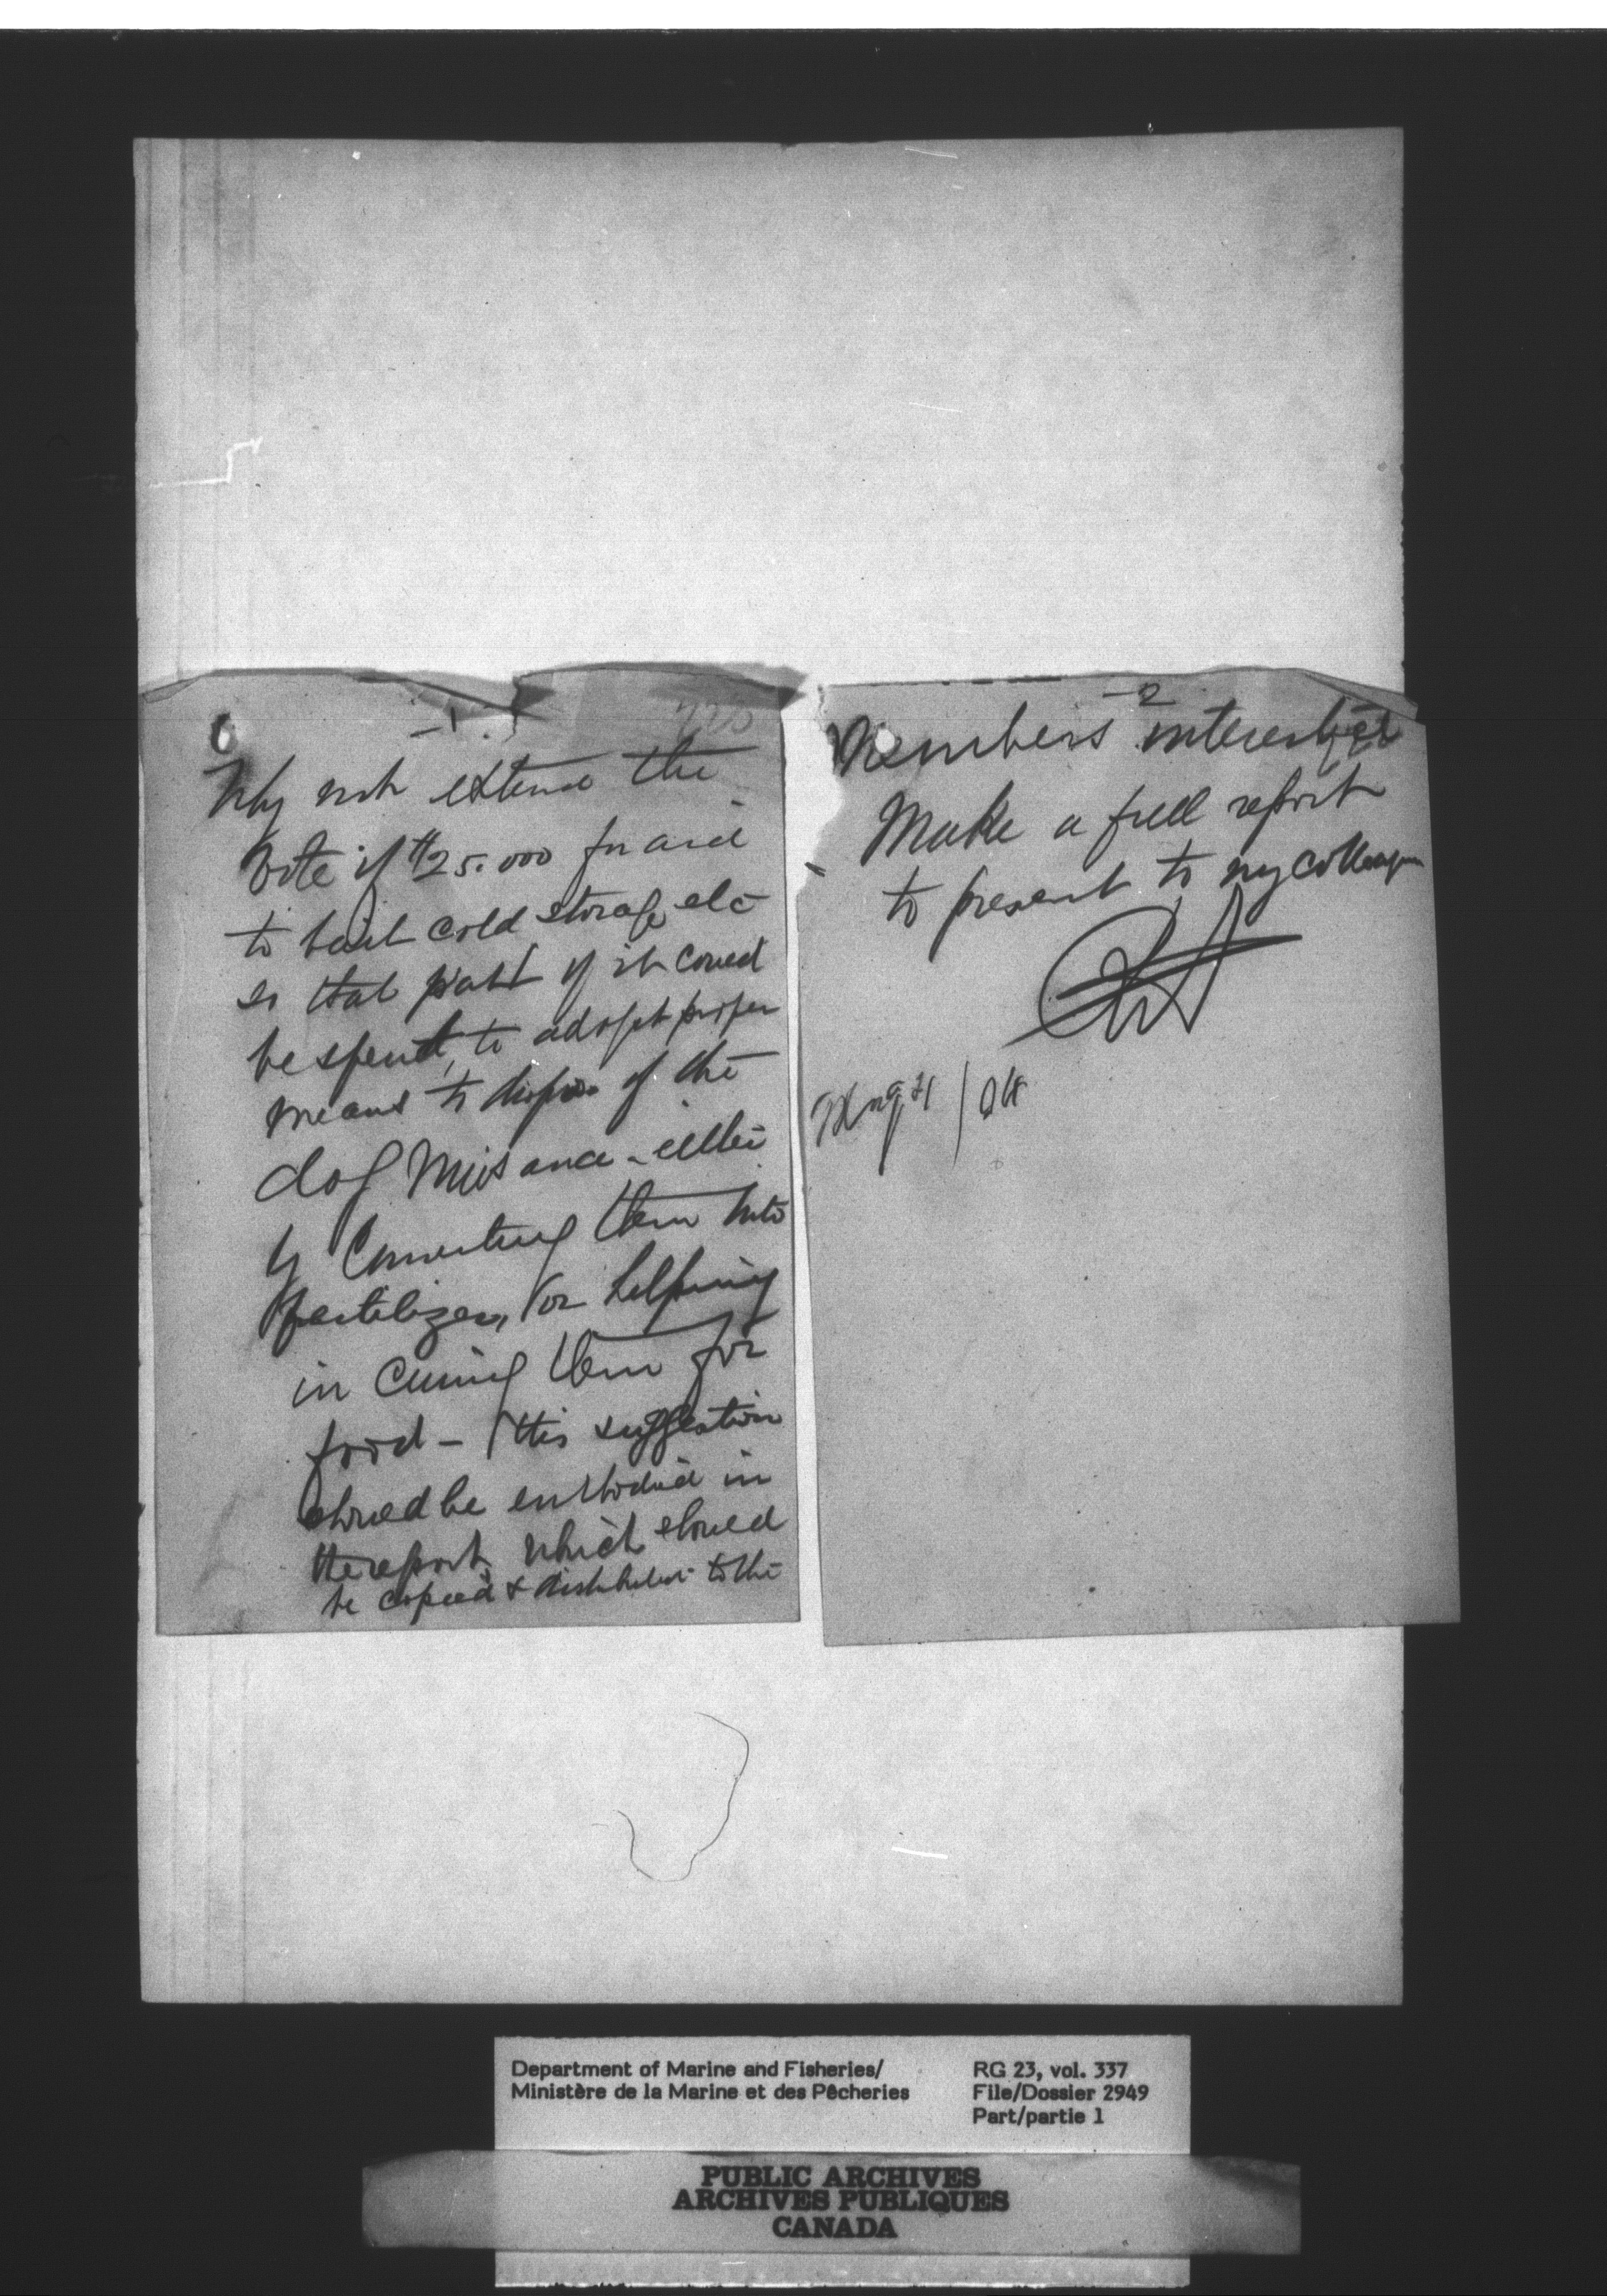 -1-
220
Why not extend the
Vote of $25.000 for aid
to bait cold storage etc
so that part of it could
be spent, to adopt proper
means to dispose of the
dog Nuisance - either
by Converting them into
fertilizer, or helping
in curing them for
food - This suggestion
should be embodied in
the report, which should
be copied & distributed to the
-2
Members interested
Make a full report
to present to my colleagues
4/04
Department of Marine and Fisheries/
Ministère de la Marine et des Pêcheries
RG 23, vol. 337
File/Dossier 2949
Part/partie 1
PUBLIC ARCHIVES
ARCHIVES PUBLIQUES
CANADA